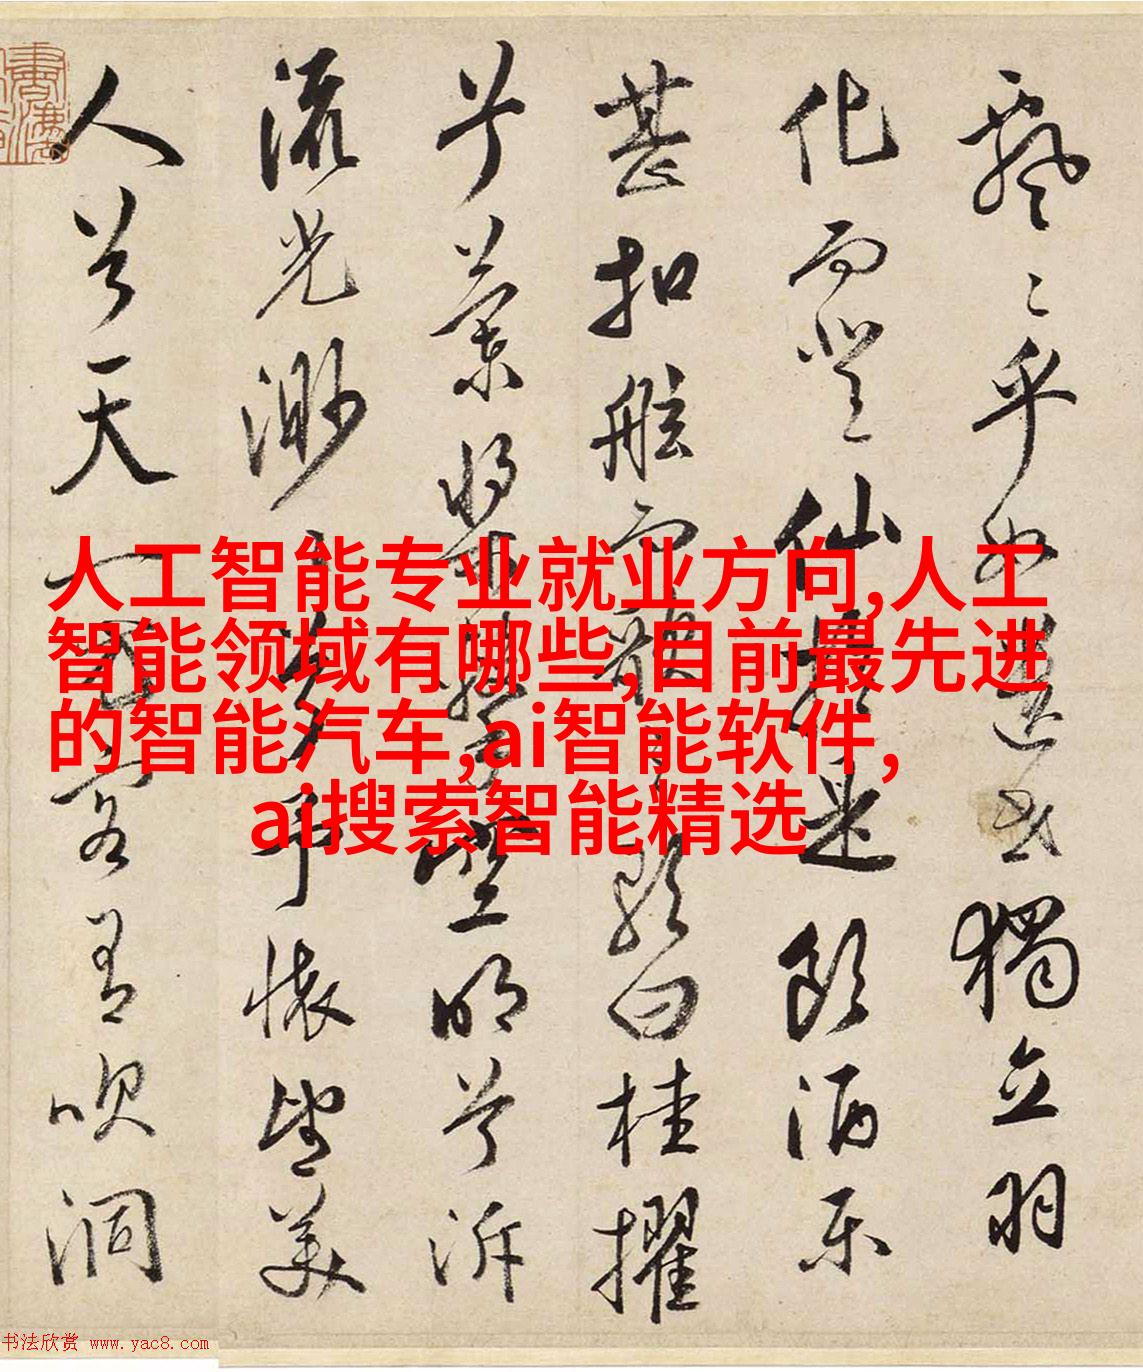 飄〻乎如遺世獨立羽
化而登仙於是飲酒乐
甚扣舷而歌之歌曰桂擢
兮蘭槳擊空明兮泝
流光渺〻兮予懷望美
人兮天一方客有吹洞
人工智能专业就业方向,人工
智能领域有哪些,目前最先进
的智能汽车,ai智能软件,
ai搜索智能精选
书法欣赏 www.yac8.com